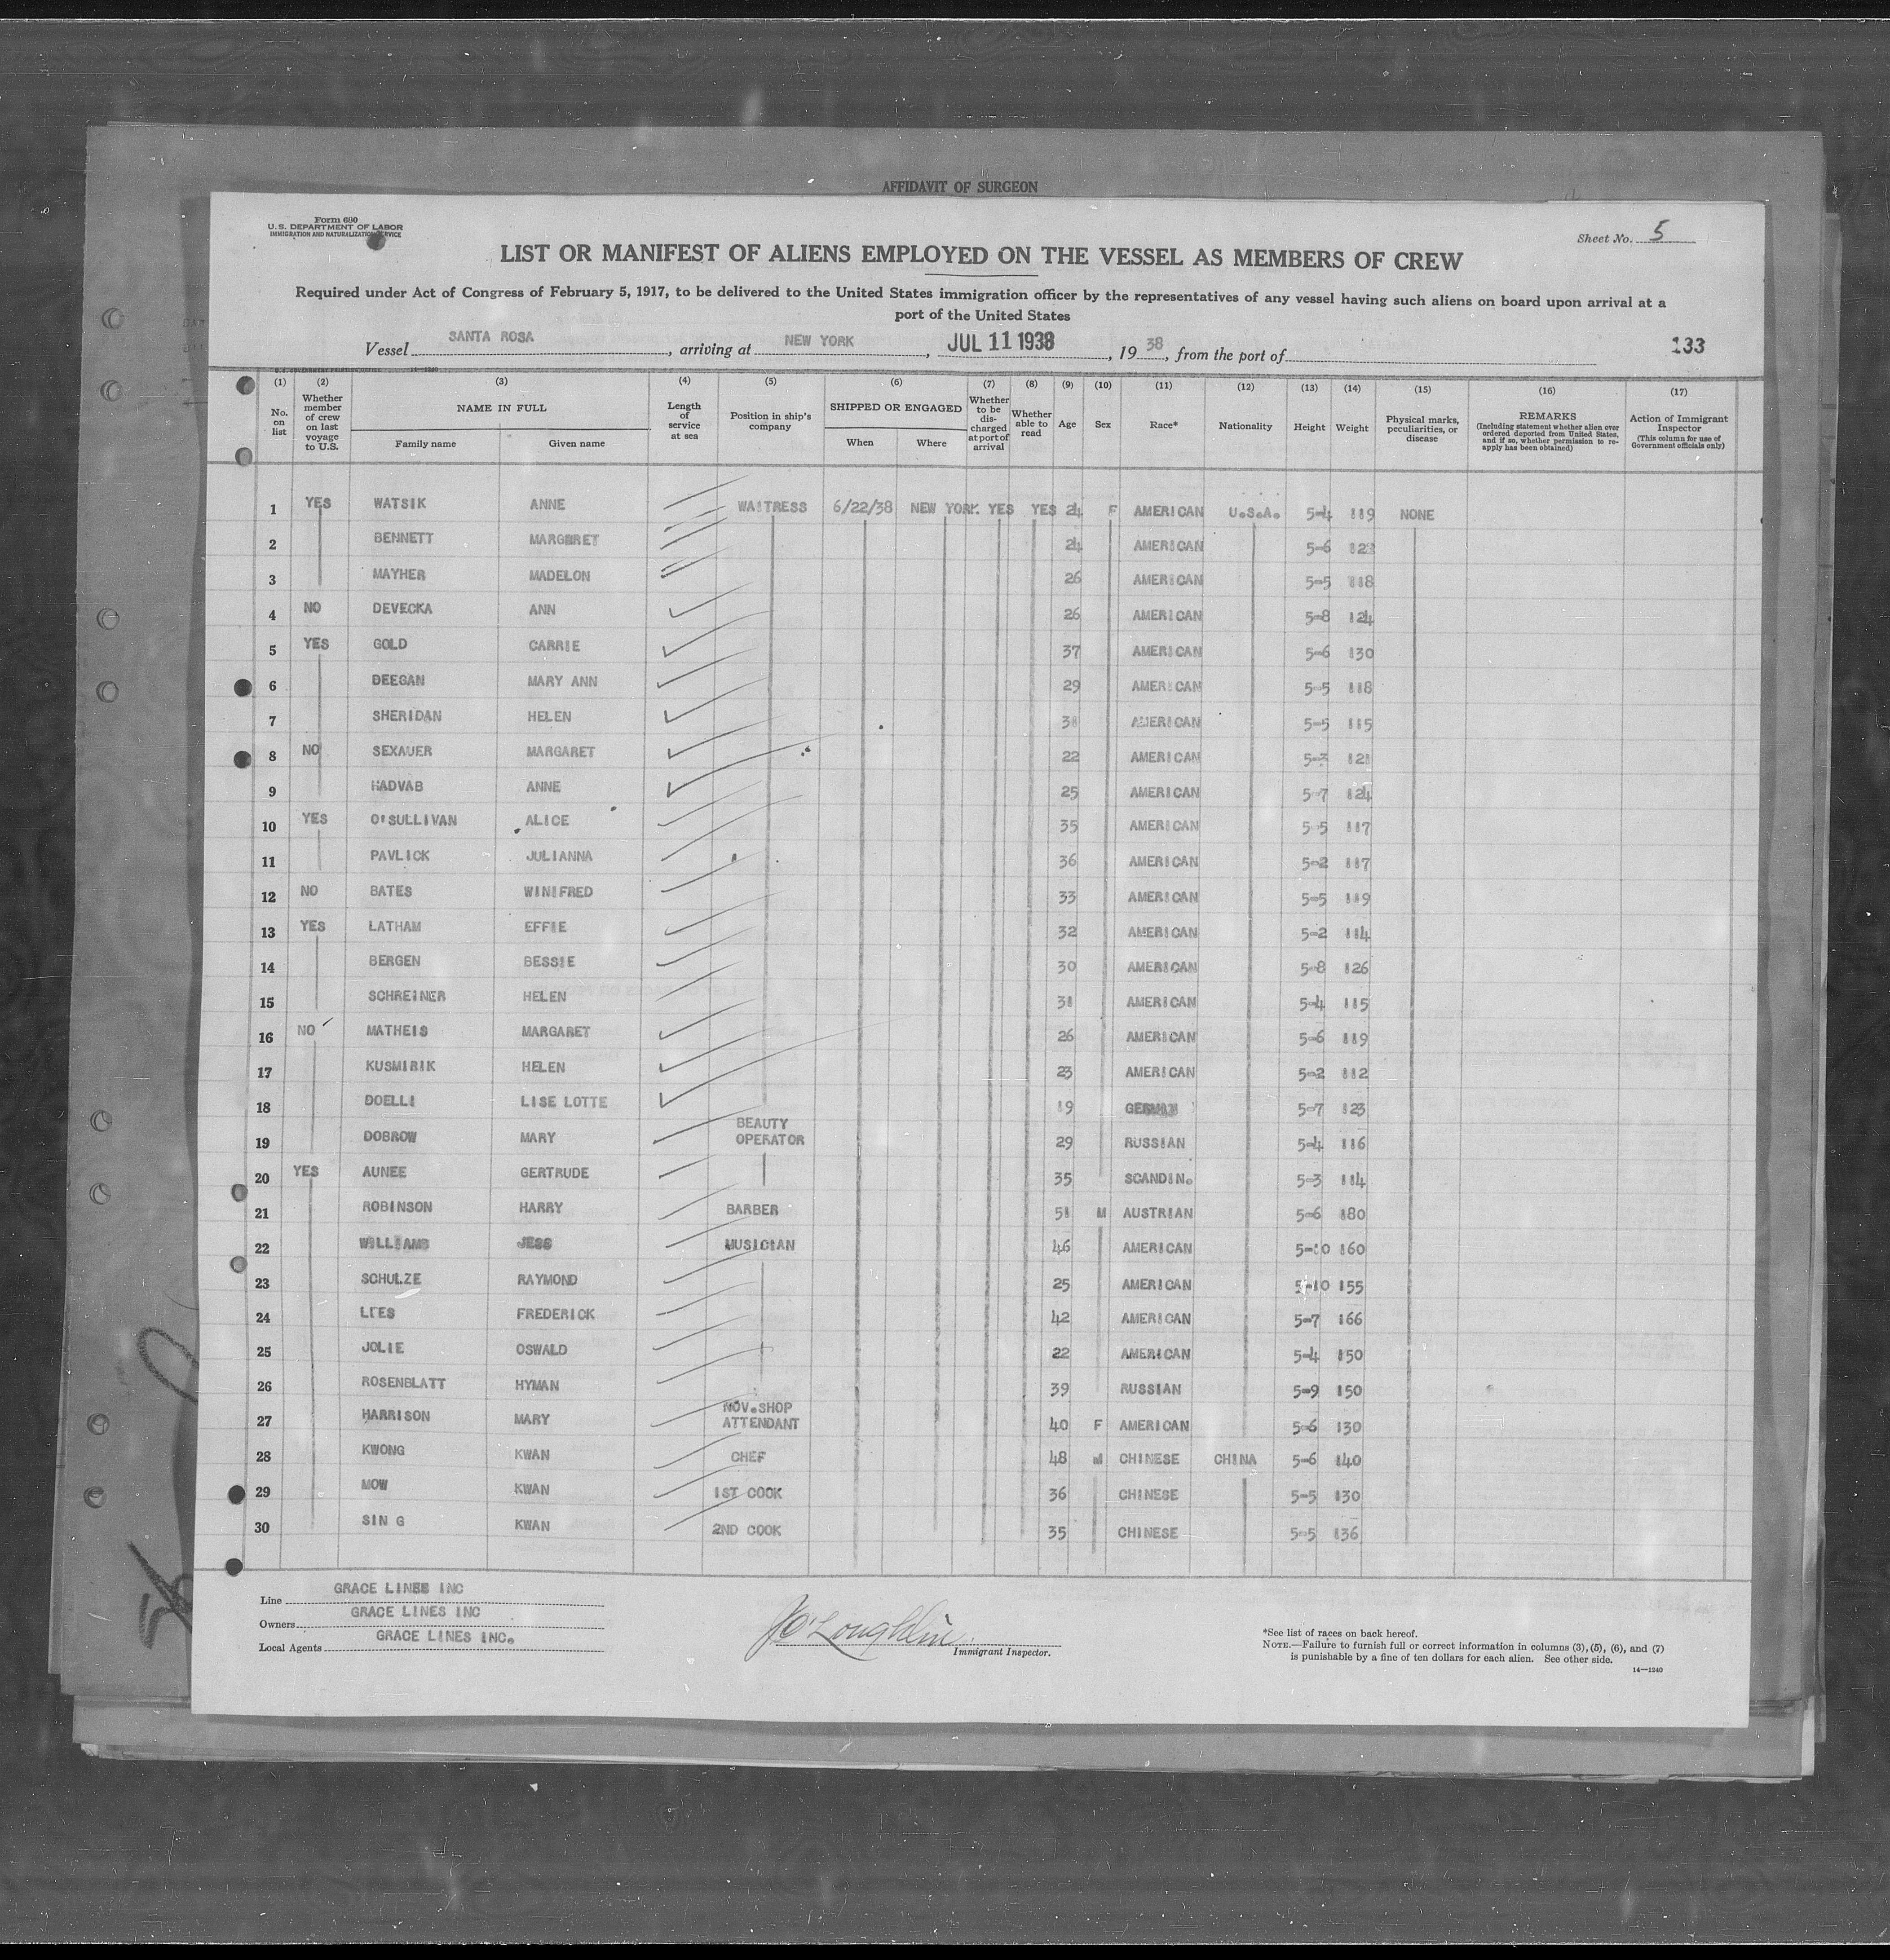 AFFIDAVIT OF SURGEON
Form 680
U. S. DEPARTMENT OF LABOR
IMMIGRATION AND NATURALIZATION SERVICE
Sheet No. 5
LIST OR MANIFEST OF ALIENS EMPLOYED ON THE VESSEL AS MEMBERS OF CREW
Required under Act of Congress of February 5, 1917, to be delivered to the United States immigration officer by the representatives of any vessel having such aliens on board upon arrival at a
port of the United States
Vessel SANTA ROSA, arriving at NEW YORK, JUL 11 1938, 19 38, from the port of
133
(1) (2) (3) (4) (5) (6) (7) (8) (9) (10) (11) (12) (13) (14) (15) (16) (17)
No. on list
Whether member of crew on last voyage to U.S.
NAME IN FULL
Family name Given name
Length of service at sea
Position in ship's company
SHIPPED OR ENGAGED
When Where
Whether to be discharged at port of arrival
Whether able to read
Age
Sex
Race*
Nationality
Height
Weight
Physical marks, peculiarities, or disease
REMARKS
(Including statement whether alien ever ordered deported from United States, and if so, whether permission to reapply has been obtained)
Action of Immigrant Inspector
(This column for use of Government officials only)
1 YES WATSIK ANNE WAITRESS 6/22/38 NEW YORK YES YES 24 F AMERICAN U.S.A. 5-4 119 NONE
2 BENNETT MARGARET 24 AMERICAN 5-6
3 MAYHER MADELON 26 AMERICAN 5-5 118
4 NO DEVECKA ANN 26 AMERICAN 5-8 124
5 YES GOLD CARRIE 37 AMERICAN 5-6 130
6 DEEGAN MARY ANN 29 AMERICAN 5-5 118
7 SHERIDAN HELEN 31 AMERICAN 5-5 115
8 NO SEXAUER MARGARET 22 AMERICAN 5-3 121
9 HADVAB ANNE 25 AMERICAN 5-7 124
10 YES O'SULLIVAN ALICE 35 AMERICAN 5-5 117
11 PAVLICK JULIANNA 36 AMERICAN 5-2 117
12 NO BATES WINIFRED 33 AMERICAN 5-5 119
13 YES LATHAM EFFIE 32 AMERICAN 5-2 114
14 BERGEN BESSIE 30 AMERICAN 5-8 126
15 SCHREINER HELEN 31 AMERICAN 5-4 115
16 NO MATHEIS MARGARET 26 AMERICAN 5-6 119
17 KUSMIRIK HELEN 23 AMERICAN 5-2 112
18 DOELLI LISE LOTTE 19 GERMAN 5-7 123
19 DOBROW MARY BEAUTY OPERATOR 29 RUSSIAN 5-4 116
20 YES AUNEE GERTRUDE 35 SCANDIN. 5-3 114
21 ROBINSON HARRY BARBER 51 M AUSTRIAN 5-6 180
22 WILLIAMS JESS MUSICIAN 46 AMERICAN 5-10 160
23 SCHULZE RAYMOND 25 AMERICAN 5-10 155
24 LEES FREDERICK 42 AMERICAN 5-7 166
25 JOLIE OSWALD 22 AMERICAN 5-4 150
26 ROSENBLATT HYMAN 39 RUSSIAN 5-9 150
27 HARRISON MARY NOV.SHOP ATTENDANT 40 F AMERICAN 5-6 130
28 KWONG KWAN CHEF 48 M CHINESE CHINA 5-6 140
29 MOW KWAN 1ST COOK 36 CHINESE 5-5 130
30 SING KWAN 2ND COOK 35 CHINESE 5-5 136
Line GRACE LINES INC
Owners GRACE LINES INC
Local Agents GRACE LINES INC.
J O'Loughlin
Immigrant Inspector.
*See list of races on back hereof.
NOTE.—Failure to furnish full or correct information in columns (3), (5), (6), and (7)
is punishable by a fine of ten dollars for each alien. See other side.
14—1240